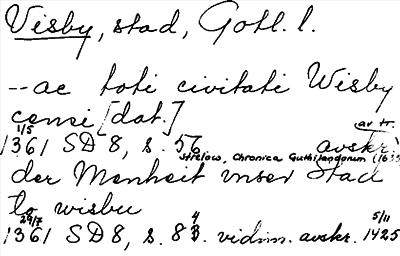 Visby, stad, Gotl. l.
--ac toti civitati Wisby
censi [dat.]
1/5 av tr.
1361 SD 8, s. 56 avskr.
Strelow, Chronica Guthilandorum (1633)
der Menheit vnser Stad
to wisbu
29/7 4 5/11
1361 SD 8, s. 83. vidim. avskr. 1425